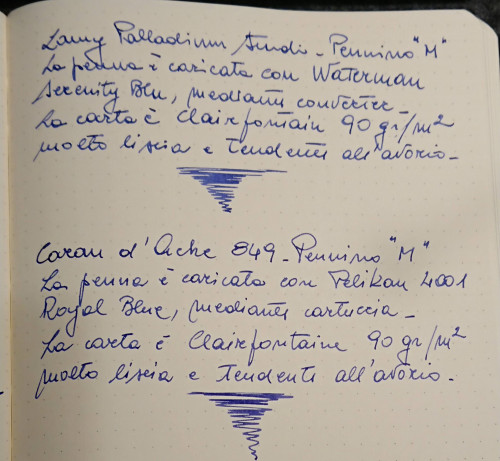 Lamy Palladium Studio - Pennino "M"
La penna è caricata con Waterman
Serenity Blu, mediante converter -
La carta è Clairfontain 90 gr/m²
molto liscia e tendente all'avorio -
Caran d'Ache 849 - Pennino "M"
La penna è caricata con Pelikan 4001
Royal Blue, mediante cartuccia -
La carta è Clairefontaine 90 gr/m²
molto liscia e tendente all'avorio -